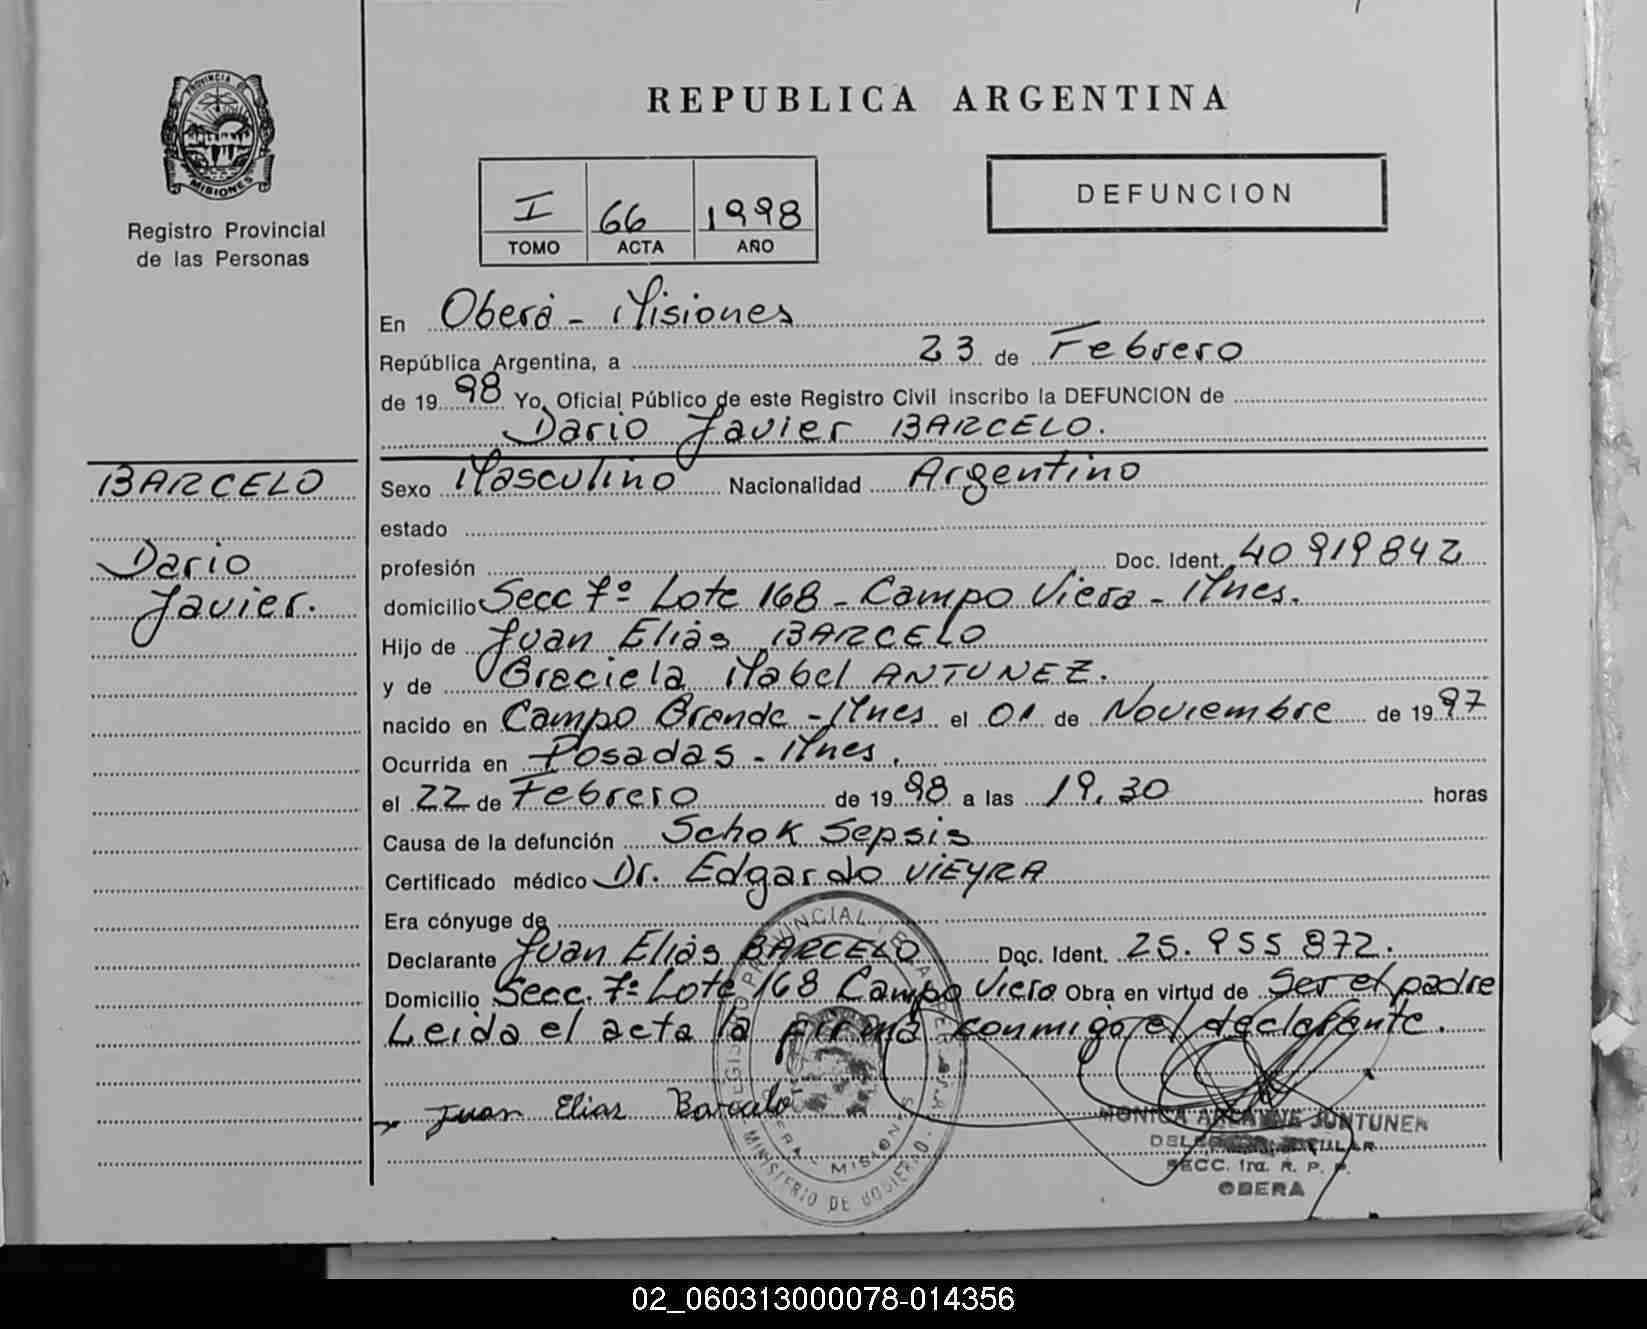 PROVINCIA DE
MISIONES
Registro Provincial
de las Personas
REPUBLICA ARGENTINA
I 66 1998
TOMO ACTA AÑO
DEFUNCION
En Oberá - Misiones
República Argentina, a 23 de Febrero
de 19 98 Yo, Oficial Público de este Registro Civil inscribo la DEFUNCION de
Dario Javier BARCELO.
BARCELO
Dario
Javier.
Sexo Masculino Nacionalidad Argentino
estado
profesión Doc. Ident. 40919842
domicilio Secc 7º Lote 168 - Campo Viera - Mnes.
Hijo de Juan Elias BARCELO
y de Graciela Mabel ANTUNEZ.
nacido en Campo Grande - Mnes el 01 de Noviembre de 19 97
Ocurrida en Posadas - Mnes.
el 22 de Febrero de 19 98 a las 19,30 horas
Causa de la defunción Schok Sepsis
Certificado médico Dr. Edgardo VIEYRA
Era cónyuge de
Declarante Juan Elias BARCELO Doc. Ident. 25.955 872.
Domicilio Secc. 7º Lote 168 Campo Viera Obra en virtud de Ser el padre
Leida el acta la firma conmigo el declarante.
Juan Elias Barcelo
REGISTRO PROVINCIAL DE LAS PERS.
MISIONES
MINISTERIO DE GOBIERNO
MONICA JUNTUNEN
SECC. 1ra. R. P. P.
OBERA
02_060313000078-014356